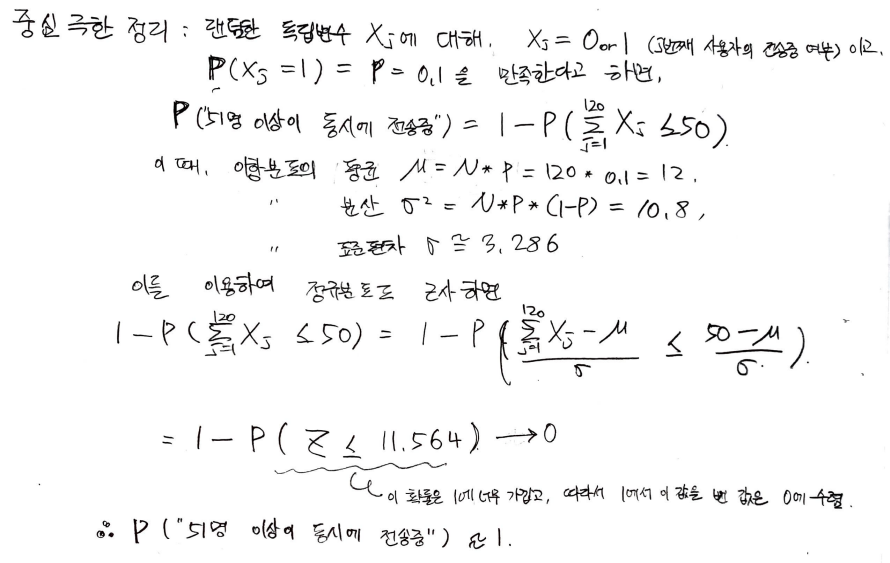 중심 극한 정리 : 랜덤한 독립변수 X_j에 대해, X_j = 0 or 1 (j번째 사용자의 전송중 여부) 이고,
P(X_j = 1) = P = 0.1 을 만족한다고 하면,
P("51명 이상이 동시에 전송중") = 1 - P(∑_{j=1}^{120} X_j ≤ 50)
이 때, 이항분포의 평균 μ = N * P = 120 * 0.1 = 12.
〃 분산 σ² = N*P*(1-P) = 10.8,
〃 표준편차 σ ≅ 3.286
이를 이용하여 정규분포로 근사하면
1 - P(∑_{j=1}^{120} X_j ≤ 50) = 1 - P((∑_{j=1}^{120} X_j - μ)/σ ≤ (50 - μ)/σ).
= 1 - P(Z ≤ 11.564) → 0
이 확률은 1에 너무 가깝고, 따라서 1에서 이 값을 뺀 값은 0에 수렴.
∴ P("51명 이상이 동시에 전송중") ≅ 1.